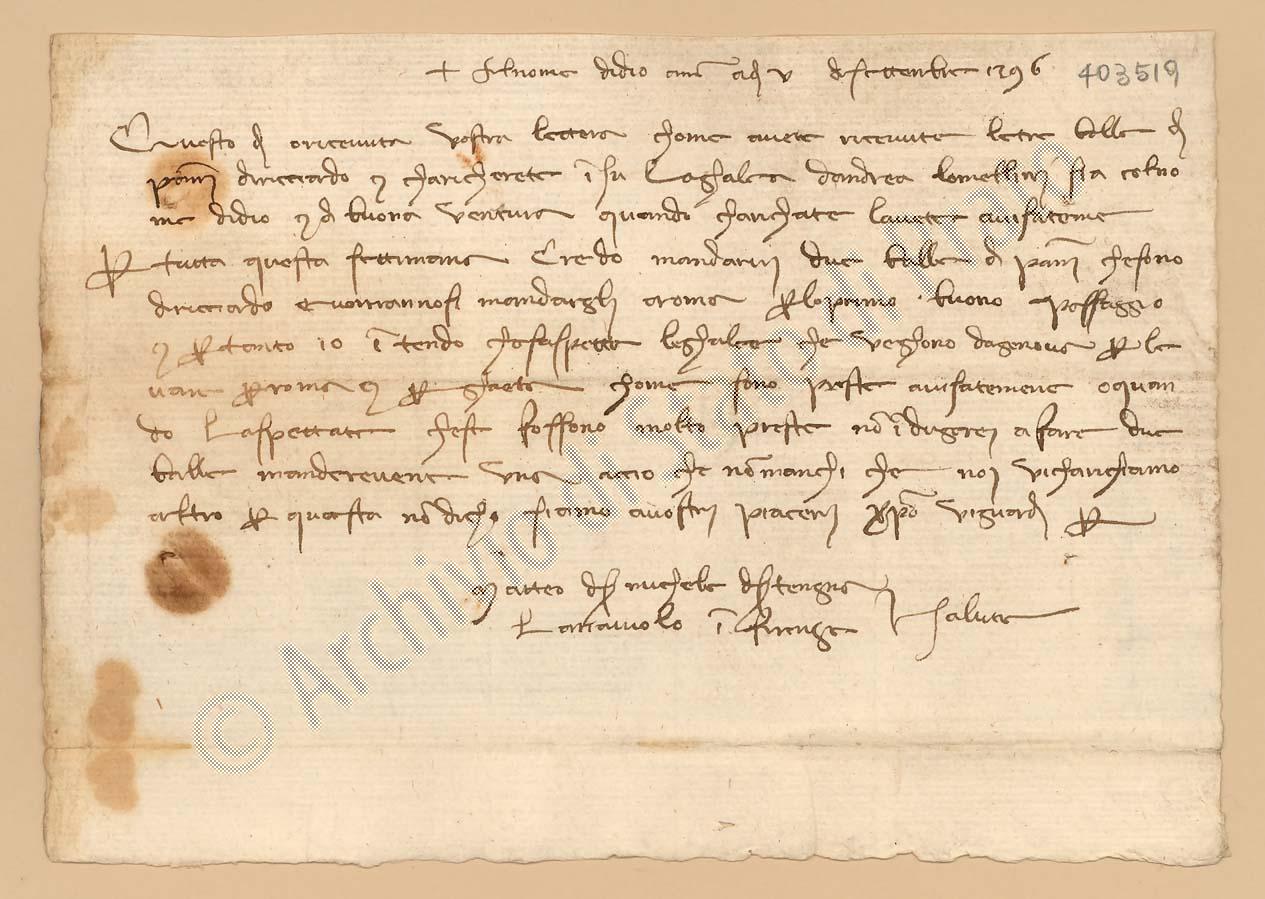 + Al nome didio am̄ adj v dj settenbre 1396 403519
Questo dj oricevuta vostra lettera chome avete ricevute letre balle dj
panni diriccardo e charicherete ī su Laghalea dandrea lomellinj sia colno
me didio e dj buona ventura quando charichate lavete avisateme
Per tutta questa settimana Credo mandarvj due balle dj panni chesono
diriccardo e vorrannosi mandargli aroma perloprimo buono passaggio
e pertanto io ī tendo chesaspetta leghalee che veghono dagenova perle
vare perroma e per ghaeta chome sono preste avisatemene oquan
do Laspettate chese fossono molto preste nō īdugerei afare due
balle manderevene una accio che nōmanchi che noj vicharichiamo
altro per questa nō dicho siamo avostri piacerj xp̄o viguardj per
Matteo dj ser michele dj ser tengna
Lanaiuolo ī Firenze salute
© Archivio di Stato di Prato